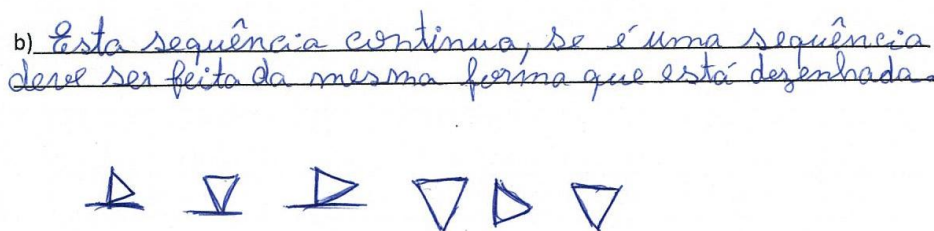 b) Esta sequência continua, se é uma sequência
deve ser feita da mesma forma que está dezenhada.